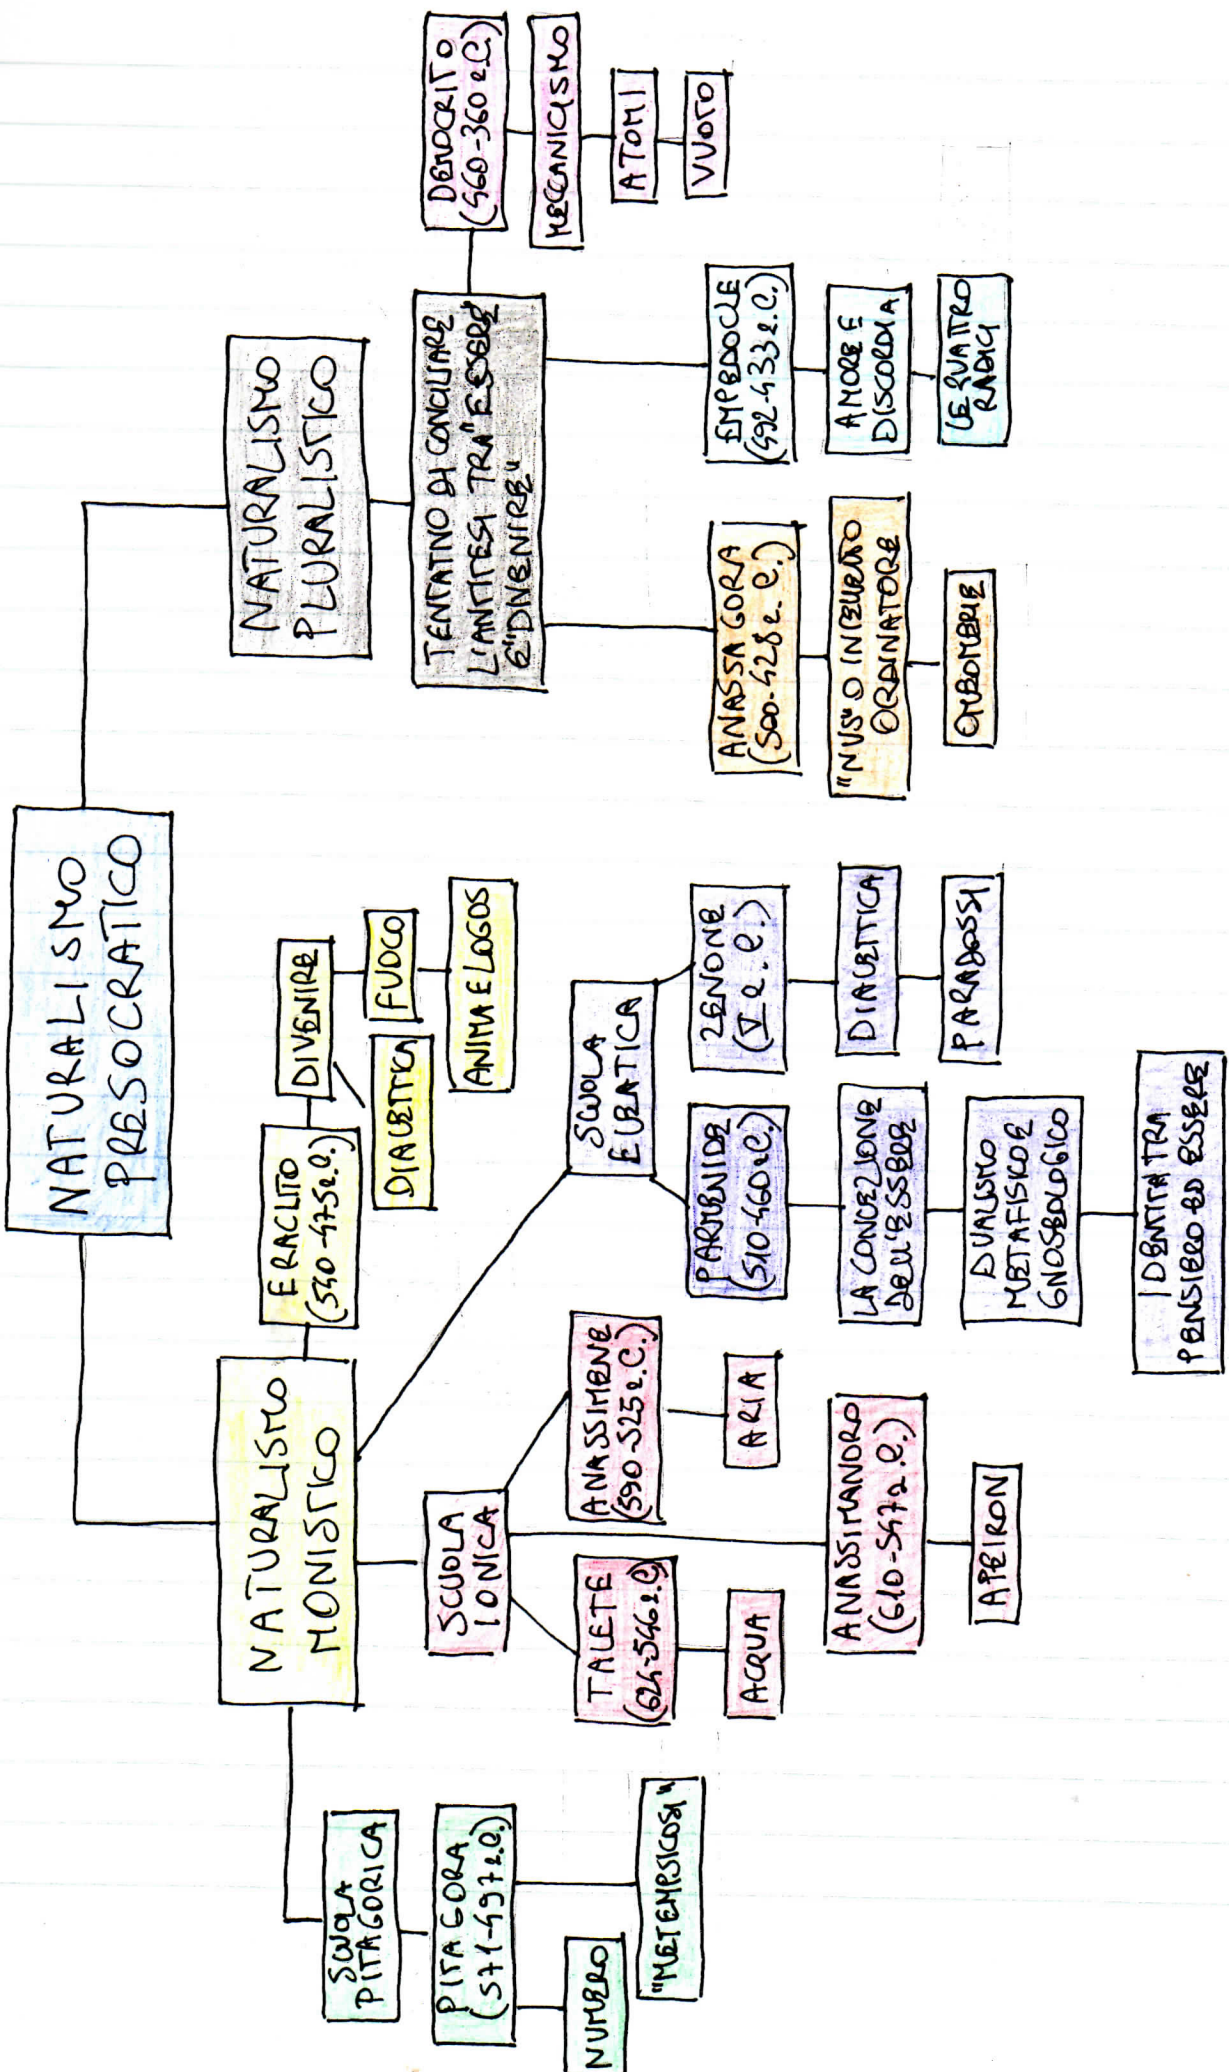 NATURALISMO
PRESOCRATICO
NATURALISMO
MONISTICO
SCUOLA
PITAGORICA
PITAGORA
(571-497 a.C.)
NUMERO
"METEMPSICOSI"
SCUOLA
IONICA
TALETE
(624-546 a.C)
ACQUA
ANASSIMENE
(590-525 a.C.)
ARIA
ANASSIMANDRO
(610-547 a.C.)
APEIRON
ERACLITO
(540-475 a.C.)
DIVENIRE
DIALETTICA
FUOCO
ANIMA E LOGOS
SCUOLA
ELEATICA
PARMENIDE
(510-460 a.C.)
LA CONCEZIONE
DELL'ESSERE
DUALISMO
METAFISICO E
GNOSEOLOGICO
IDENTITA TRA
PENSIERO ED ESSERE
ZENONE
(V a.C.)
DIALETTICA
PARADOSSI
NATURALISMO
PLURALISTICO
TENTATIVO DI CONCILIARE
L'ANTITESI TRA "ESSERE"
E "DIVENIRE"
ANASSAGORA
(500-428 a.C.)
"NUS" O INTELLETTO
ORDINATORE
OMEOMERIE
EMPEDOCLE
(492-433 a.C.)
AMORE E
DISCORDIA
LE QUATTRO
RADICI
DEMOCRITO
(460-360 a.C.)
MECCANICISMO
ATOMI
VUOTO